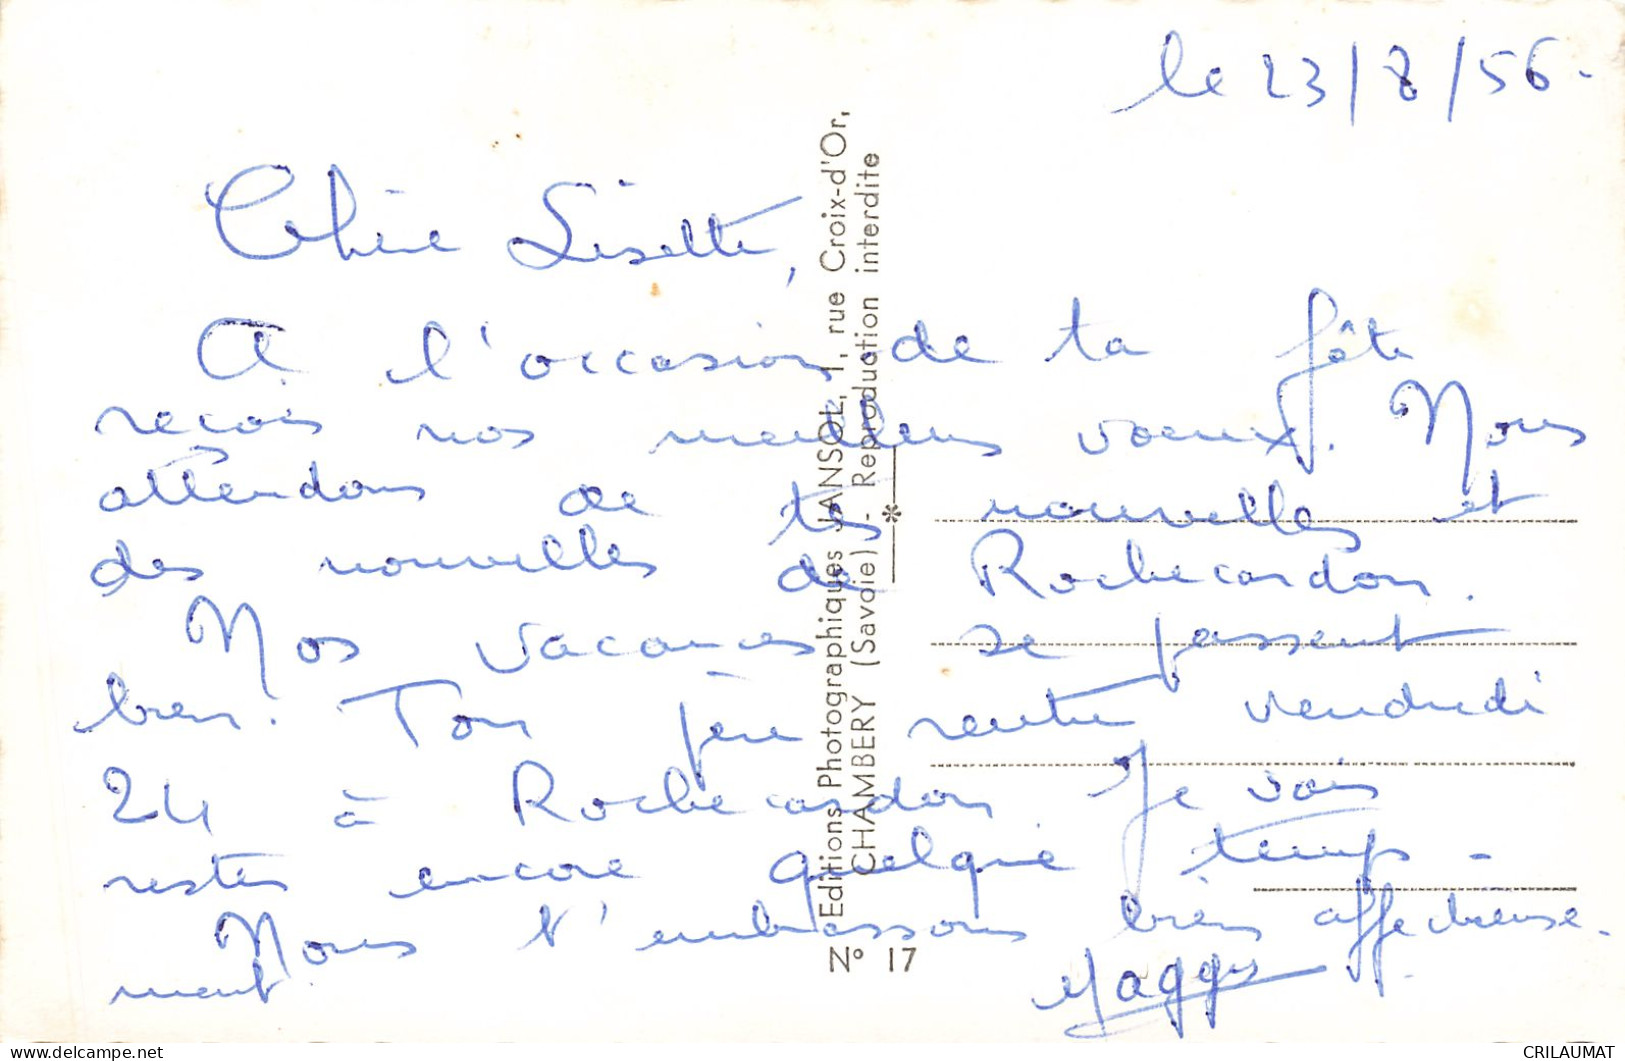 le 23/8/56.
Chère Lisette,
A l'occasion de ta fête
reçois nos meilleurs voeux. Nous
attendons de tes nouvelles et
des nouvelles de Rochecardon.
Nos vacances se passent
bien. Ton père rentre vendredi
24 à Rochecardon Je vais
rester encore quelque temps -
Nous t'embrassons bien affectueuse-
ment.
Maggy
Editions Photographiques JANSOL, 1, rue Croix-d'Or,
CHAMBERY (Savoie) - Reproduction interdite
N° 17
delcampe.net
CRILAUMAT